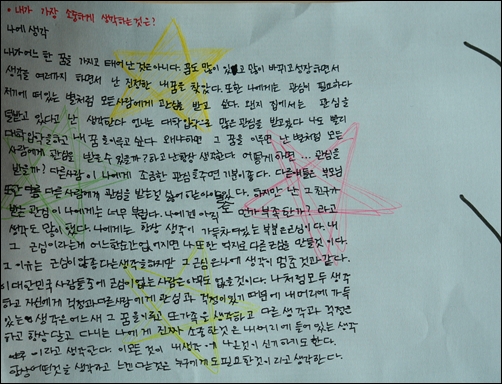 • 내가 가장 소중하게 생각하는것은?
나에 생각
내가 어느 한 꿈을 가지고 태어 난것은아니다. 꿈도 많이 있고 많이 바뀌고 성장하면서
생각을 여러가지 하면서 난 진정한 내꿈을 찾았다. 또한 나에게는 관심이 필요하다
저기에 떠있는 별처럼 모든사람에게 관심을 받고 싶다. 왠지 집에서는 관심을
덜받고 있다고 난 생각한다. 언니는 대학입학으로 많은관심을 받고있다 나도 빨리
대학입학을하고 내 꿈을이루고 싶다. 왜냐하면 그 꿈을 이루면 난 별처럼 모든
사람에게 관심을 받을수 있을까?하고 난 항상 생각한다. 어떻게하면... 관심은
받을까? 다른사람이 나에게 조금한 관심을주면 기분이좋다. 다른애들은 부모님
또는 다른 사람에게 관심을 받는걸 싫어하는아이도있다. 하지만 난 그친구가
받는 관심이 나에게는 너무 부럽다. 나에겐 아직도 뭔가 부족한가? 라고
생각도 많이 했다. 나에게는 항상 생각이 가득차여있는 부분은 근심이다. 내
그 근심이라는게 어느한순간 없어지면 나 또한 억지로 다른근심을 만들것이다.
그 이유는 근심이 않좋다는생각을하지만 그 근심은나에 생각이 멈춘것과같다.
이 대한민국 사람들중에 근심이없는사람은 아무도 없을것이다. 나처럼모두 생각
하고 자신에게 걱정과 다른사람에게 관심과 걱정이있기 때문에 내 머리에 가득
있는 생각은 어느새 그 꿈을이루고 또가족을생각하고 다른 생각과 걱정은
하고 항상 달고 다니는 나에게 진짜 소중한것은 내머리에 들어있는 생각
이라고 생각한다. 이모든 것이 내생각에 나온것이 신기하기도하다.
항상어떤것을 생각하고 느낀다는것은 누구에게도필요한것이라고 생각한다.